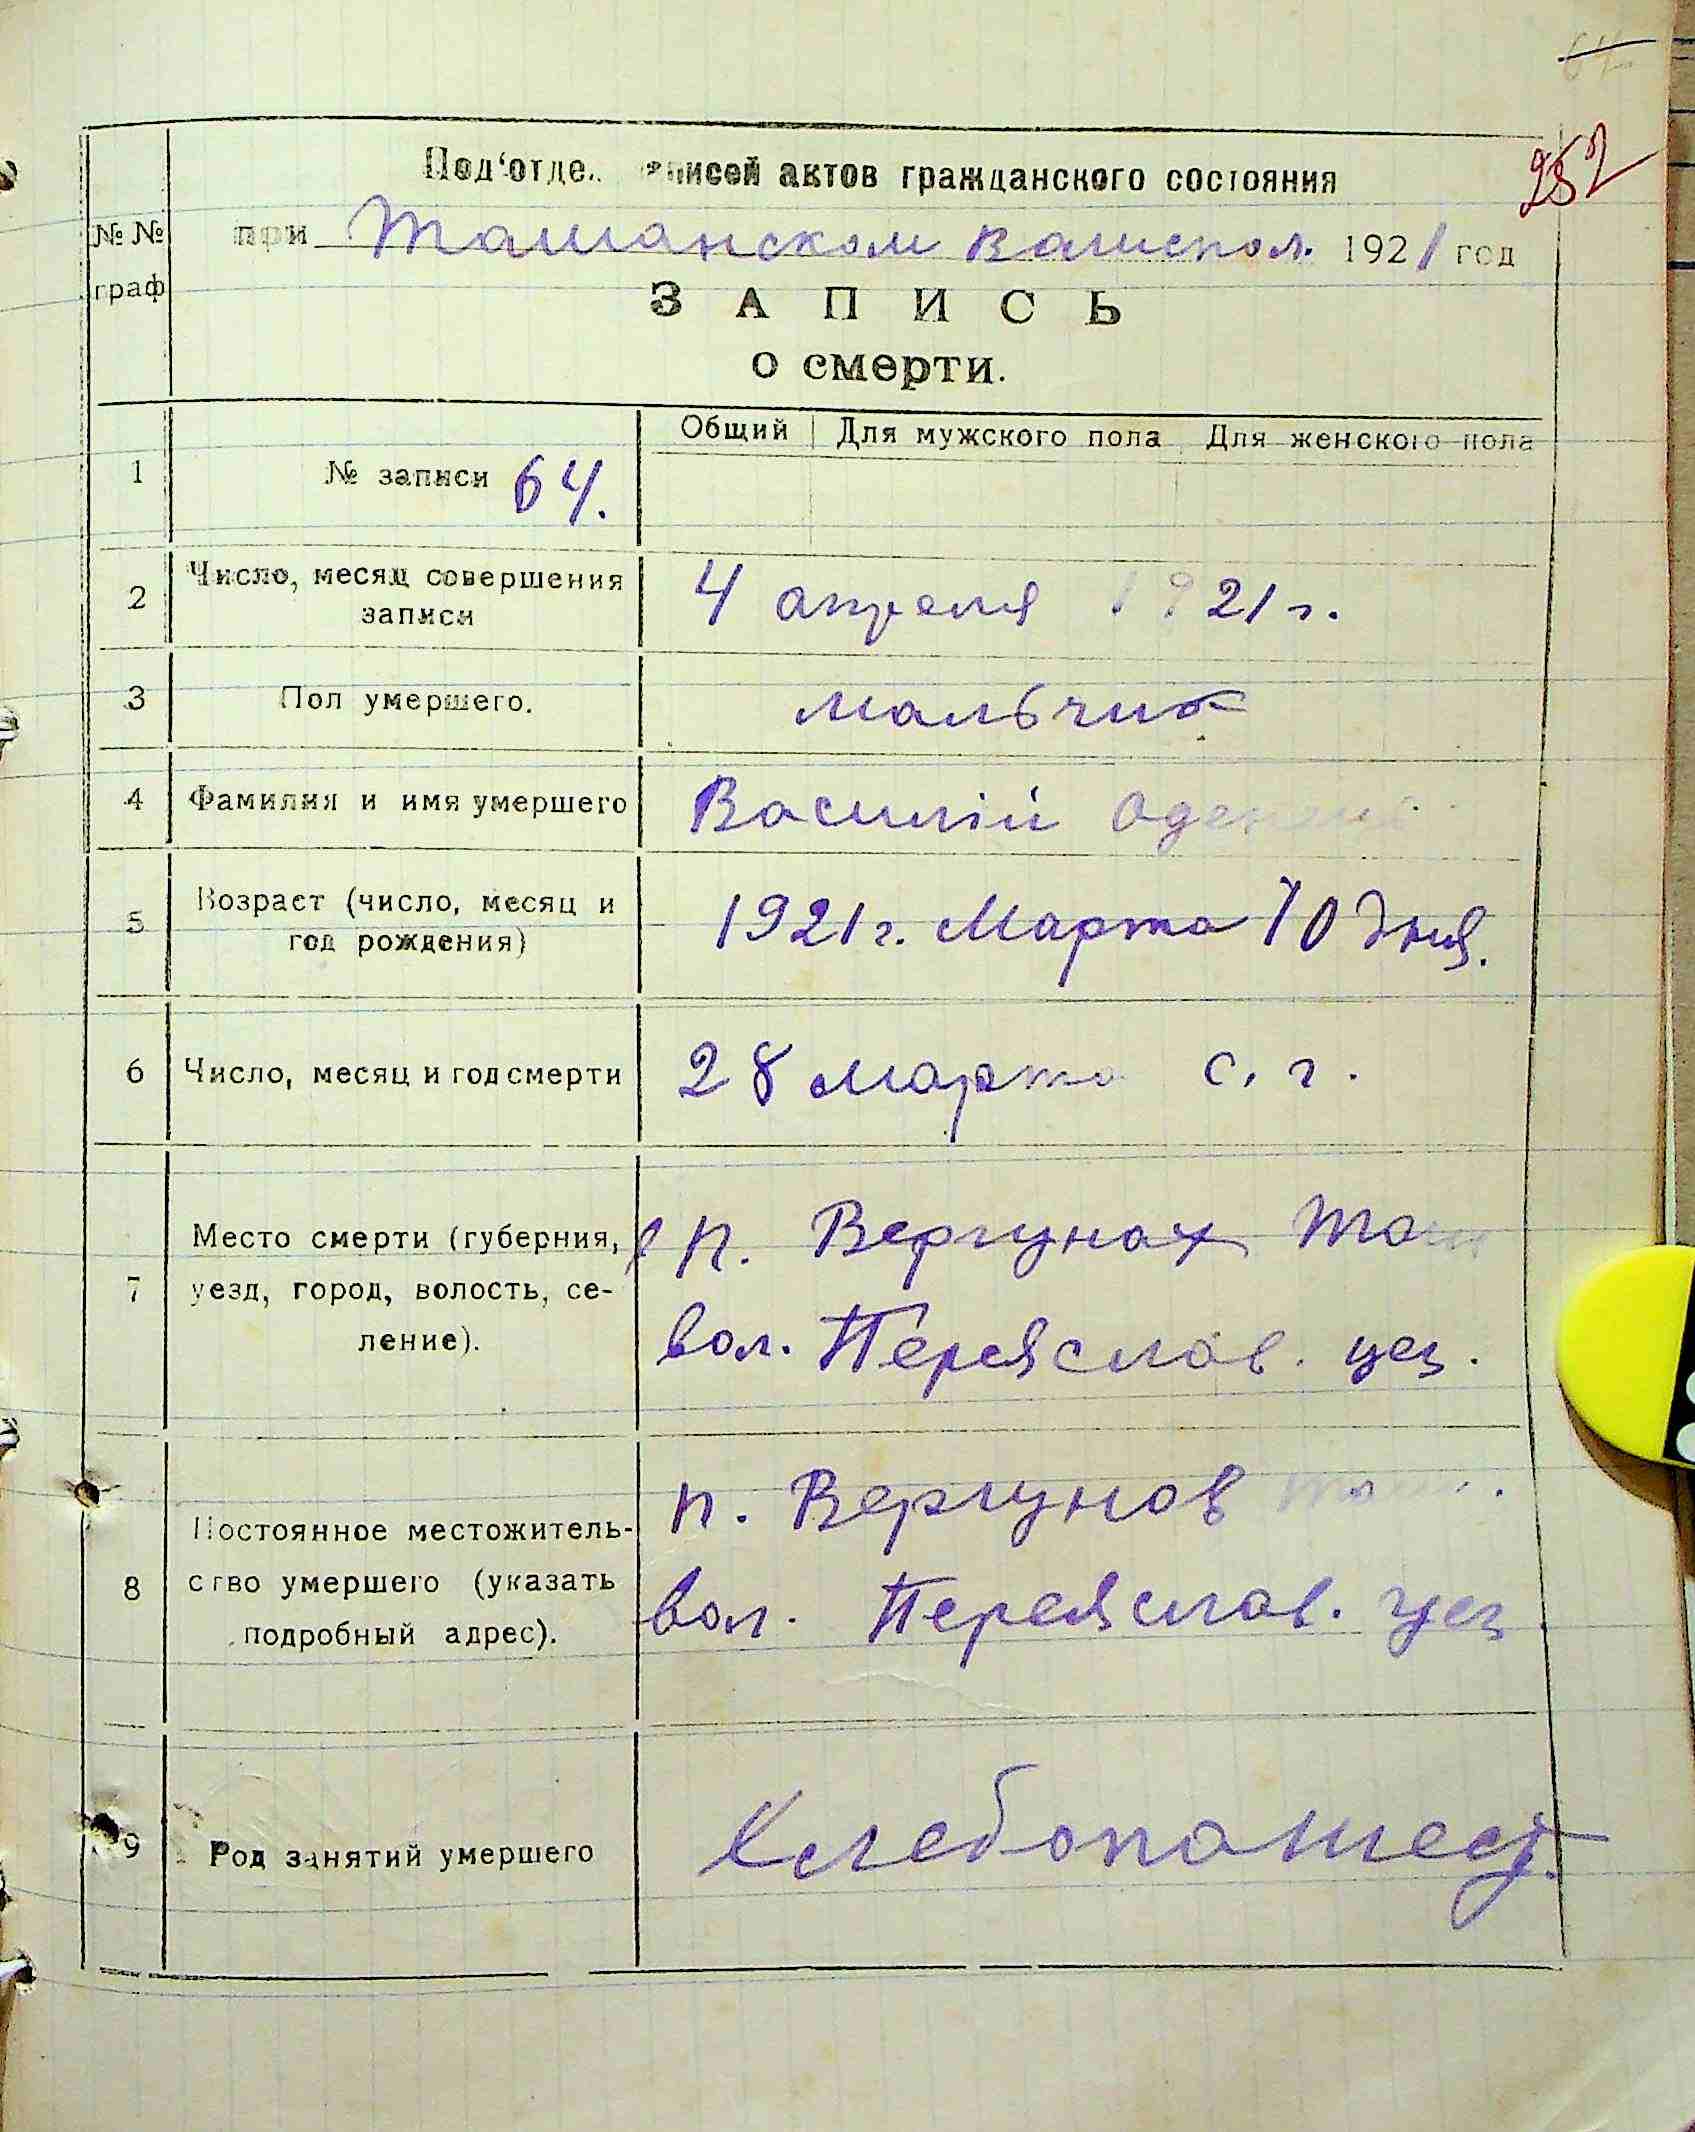 252
Под‘отде.. записей актов гражданского состояния
№№ граф
при Ташанском Волиспол. 1921 год
ЗАПИСЬ
о смерти.
Общий Для мужского пола Для женского пола
1 № записи 64.
2 Число, месяц совершения 4 апреля 1921 г.
записи
3 Пол умершего. мальчик
4 Фамилия и имя умершего Василій
5 Возраст (число, месяц и 1921 г. Марта 10 дня.
год рождения)
6 Число, месяц и год смерти 28 марта с. г.
7 Место смерти (губерния, п. Вергунах Таш
уезд, город, волость, се-
ление). вол. Переяслав. уез.
8 п. Вергунов таш.
Постоянное местожитель-
ство умершего (указать вол. Переяслав. уез
подробный адрес).
9 Род занятий умершего Хлебопашест.